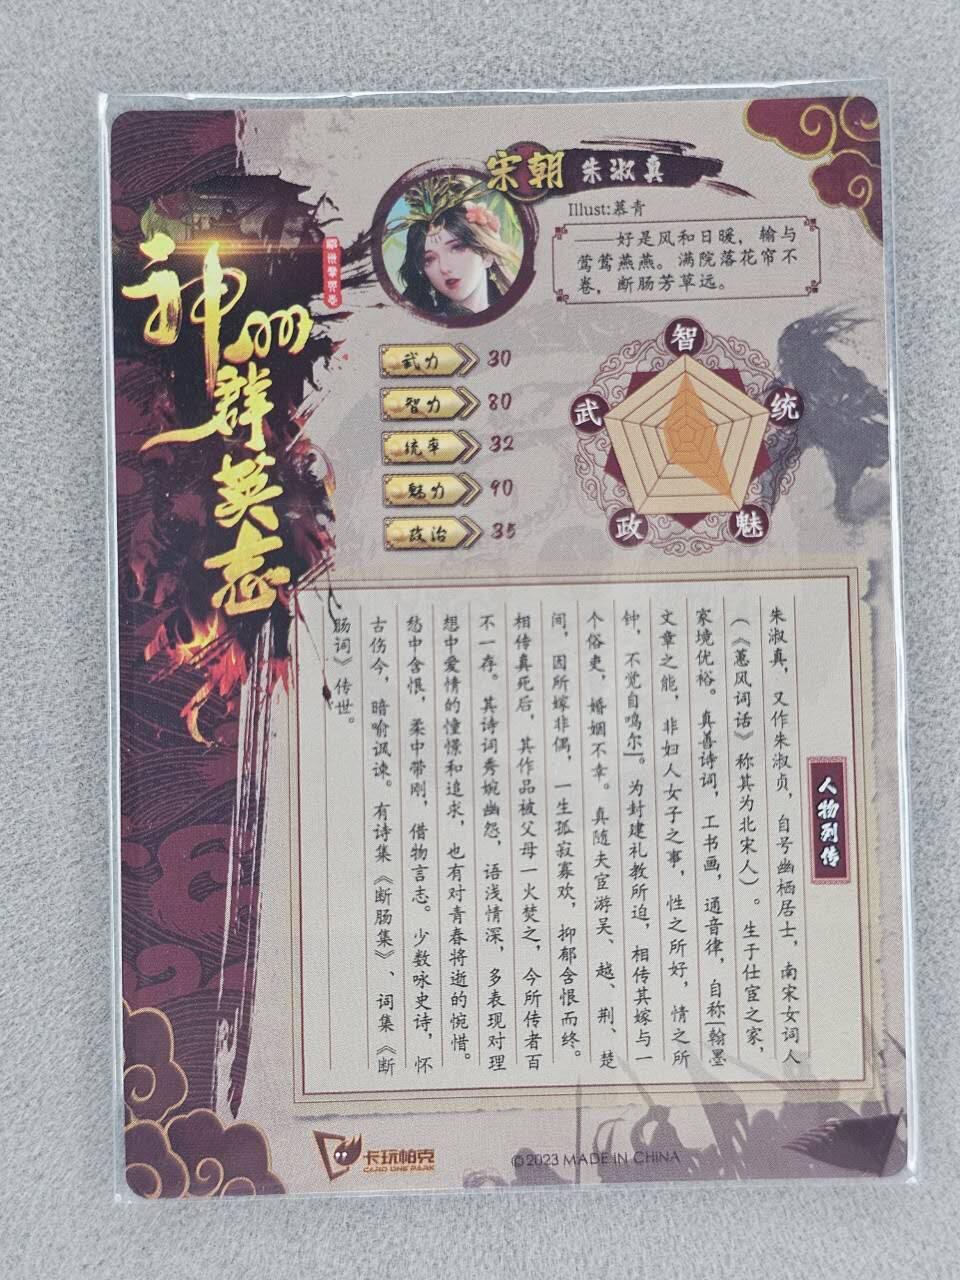 神州群英志
宋朝 朱淑真
Illust:慕青
——好是风和日暖，输与
莺莺燕燕。满院落花帘不
卷，断肠芳草远。
武力 30
智力 80
统率 32
魅力 90
政治 35
智
武
统
政
魅
人物列传
朱淑真，又作朱淑贞，自号幽栖居士，南宋女词人
（《蕙风词话》称其为北宋人）。生于仕宦之家，
家境优裕。真善诗词，工书画，通音律，自称[翰墨
文章之能，非妇人女子之事，性之所好，情之所
钟，不觉自鸣尔]。为封建礼教所迫，相传其嫁与一
个俗吏，婚姻不幸。真随夫宦游吴、越、荆、楚
间，因所嫁非偶，一生孤寂寡欢，抑郁含恨而终。
相传真死后，其作品被父母一火焚之，今所传者百
不一存。其诗词秀婉幽怨，语浅情深，多表现对理
想中爱情的憧憬和追求，也有对青春将逝的惋惜。
愁中含恨，柔中带刚，借物言志。少数咏史诗，怀
古伤今，暗喻讽谏。有诗集《断肠集》、词集《断
肠词》传世。
卡玩帕克
CARD ONE PARK
©2023 MADE IN CHINA